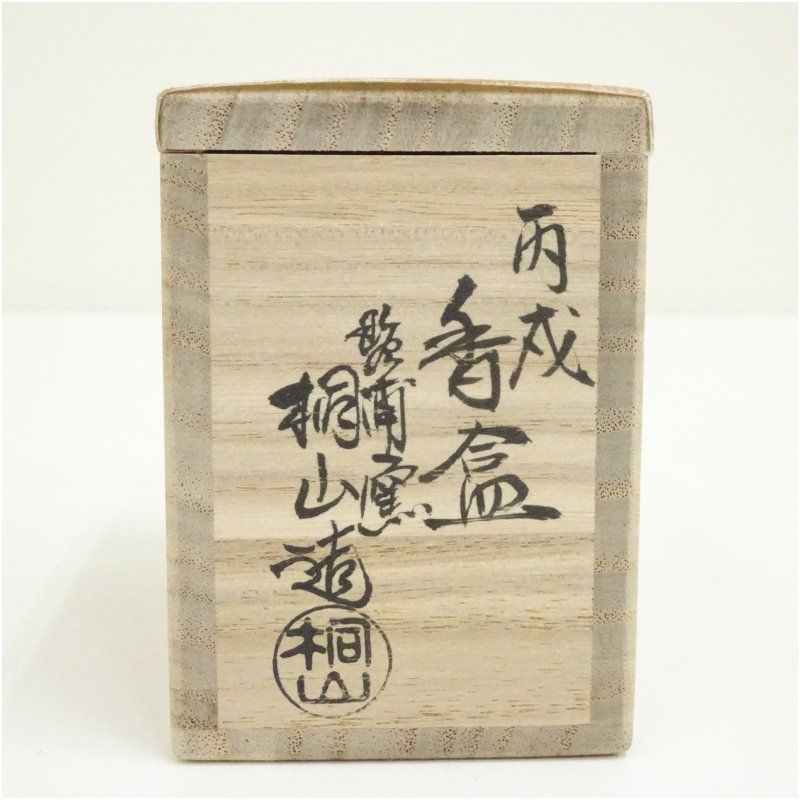 丙戌
香盒
塩浦窯
桐山造
桐山